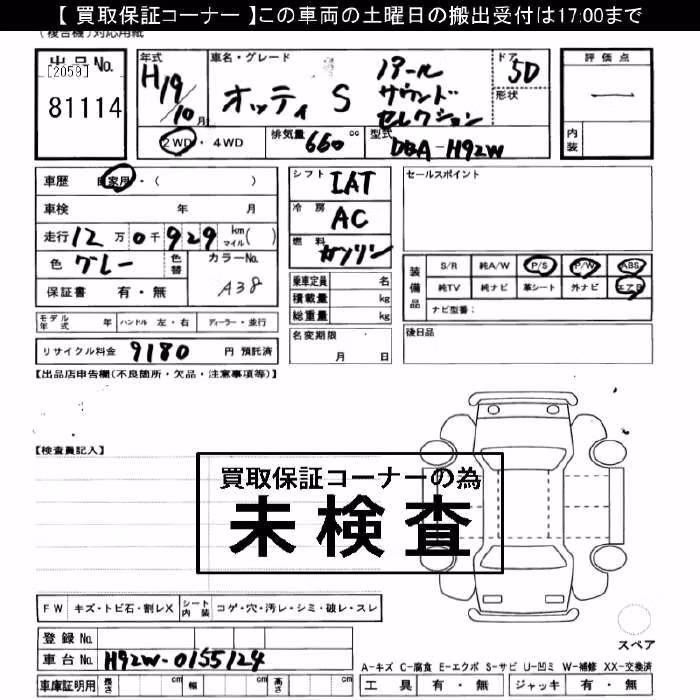 【 買取保証コーナー 】この車両の土曜日の搬出受付は17:00まで
(複合機)対応用紙
出品No. [2059] 81114
年式 H19/10月
車名・グレード オッティ S パール サウンド セレクション
ドア 5D
形状
評価点 一
内装
2WD ・ 4WD
排気量 660 cc
型式 DBA-H92W
車歴 自家用・( )
車検 年 月
走行 12万0千929 km マイル( )
色 グレー 色替 カラーNo. A38
保証書 有・無
シフト IAT
冷房 AC
燃料 ガソリン
乗車定員 名
積載量 kg
総重量 kg
セールスポイント
装備品 S/R 純A/W P/S P/W ABS
純TV 純ナビ 革シート 外ナビ エアB
ナビ型番:
モデル年式 年 ハンドル 左・右 ディーラー・並行
リサイクル料金 9180 円 預託済
名変期限 月 日
後日品
【出品店申告欄(不良箇所・欠品・注意事項等)】
【検査員記入】
買取保証コーナーの為
未検査
FW キズ・トビ石・割レX シート内装 コゲ・穴・汚レ・シミ・破レ・スレ
登録No.
車台No. H92W-0155124
スペア
A-キズ C-腐食 E-エクボ S-サビ U-凹ミ W-補修 XX-交換済
車庫証明用 長さ cm 幅 cm 高さ cm
工具 有・無 ジャッキ 有・無